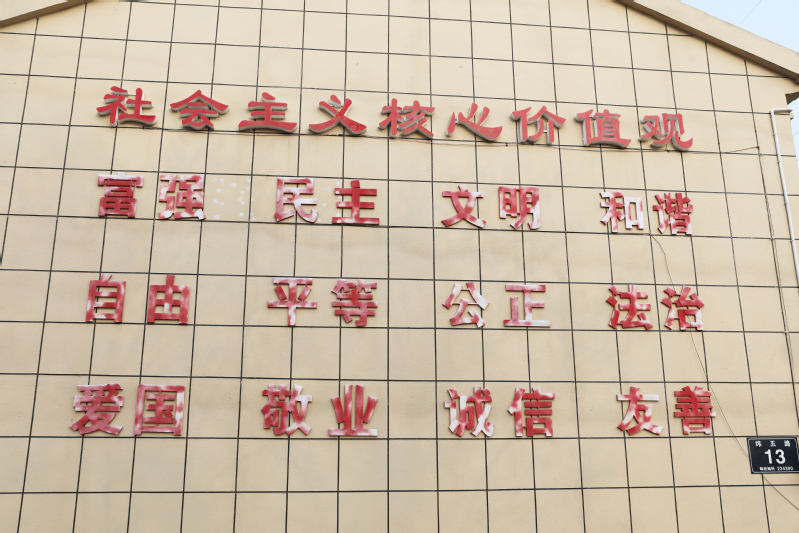 社会主义核心价值观
富强 民主 文明 和谐
自由 平等 公正 法治
爱国 敬业 诚信 友善
纬五路
13